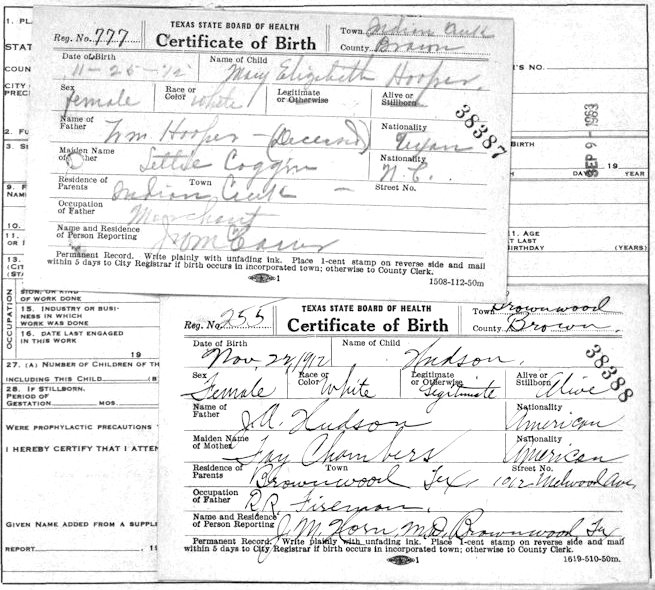 1. PL
STAT
COUN
CITY
PRECI
2. FU
3. S
9. F
NAME
10.
11.
OR I
13.
(CIT
(STA
OCCUPATION
SION, OR KIND
OF WORK DONE
15. INDUSTRY OR BUSI-
NESS IN WHICH
WORK WAS DONE
16. DATE LAST ENGAGED
IN THIS WORK
19
27. (A) NUMBER OF CHILDREN OF TH
INCLUDING THIS CHILD (B
28. IF STILLBORN,
PERIOD OF
GESTATION MOS.
WERE PROPHYLACTIC PRECAUTIONS
I HEREBY CERTIFY THAT I ATTEN
GIVEN NAME ADDED FROM A SUPPLE
REPORT , 1
'S NO.
BIRTH
19
SEP 9 - 1963
1. AGE
AT LAST
BIRTHDAY (YEARS)
TEXAS STATE BOARD OF HEALTH
Reg. No. 777 Certificate of Birth Town Indian Creek
County Brown
Date of Birth Name of Child
11-25-12 Mary Elizabeth Hooper
Sex Race or Color Legitimate or Otherwise Alive or Stillborn
female white
38387
Name of Father Wm Hooper - (Deceased) Nationality Texan
Maiden Name of Mother Lettie Coggin Nationality N.C.
Residence of Parents Town Street No.
Indian Creek -
Occupation of Father
Merchant
Name and Residence of Person Reporting
Permanent Record. Write plainly with unfading ink. Place 1-cent stamp on reverse side and mail
within 5 days to City Registrar if birth occurs in incorporated town; otherwise to County Clerk.
1 1508-112-50m
TEXAS STATE BOARD OF HEALTH
Reg. No. 255 Certificate of Birth Town Brownwood
County Brown.
Date of Birth Name of Child
Nov. 1912 Hudson.
38388
Sex Race or Color Legitimate or Otherwise Alive or Stillborn
Female White Legitimate Alive
Name of Father Nationality
J.A. Hudson American
Maiden Name of Mother Nationality
Fay Chambers American
Residence of Parents Town Street No.
Brownwood Tex, Melwood Ave,
Occupation of Father
R.R. Fireman.
Name and Residence of Person Reporting
J.M. Horn M.D. Brownwood Tex
Permanent Record. Write plainly with unfading ink. Place 1-cent stamp on reverse side and mail
within 5 days to City Registrar if birth occurs in incorporated town; otherwise to County Clerk.
1 1619-510-50m